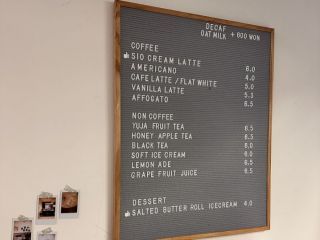 DECAF
OAT MILK + 600 WON
COFFEE
SIO CREAM LATTE 6.0
AMERICANO 4.0
CAFE LATTE / FLAT WHITE 5.0
VANILLA LATTE 5.3
AFFOGATO 6.5
NON COFFEE
YUJA FRUIT TEA 6.5
HONEY APPLE TEA 6.5
BLACK TEA 6.0
SOFT ICE CREAM 6.0
LEMON ADE 6.5
GRAPE FRUIT JUICE 6.5
DESSERT
SALTED BUTTER ROLL ICECREAM 4.0